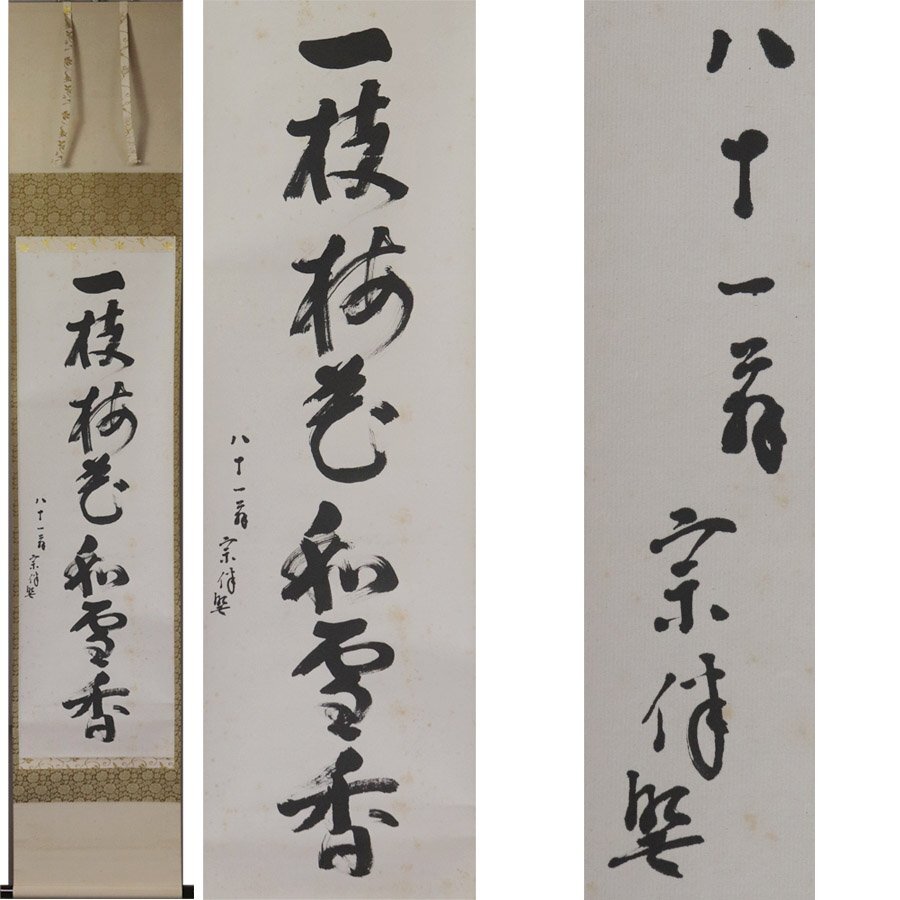 一枝梅花和雪香
八十一翁 宗伴
一枝梅花和雪香
八十一翁 宗伴
八十一翁
宗伴